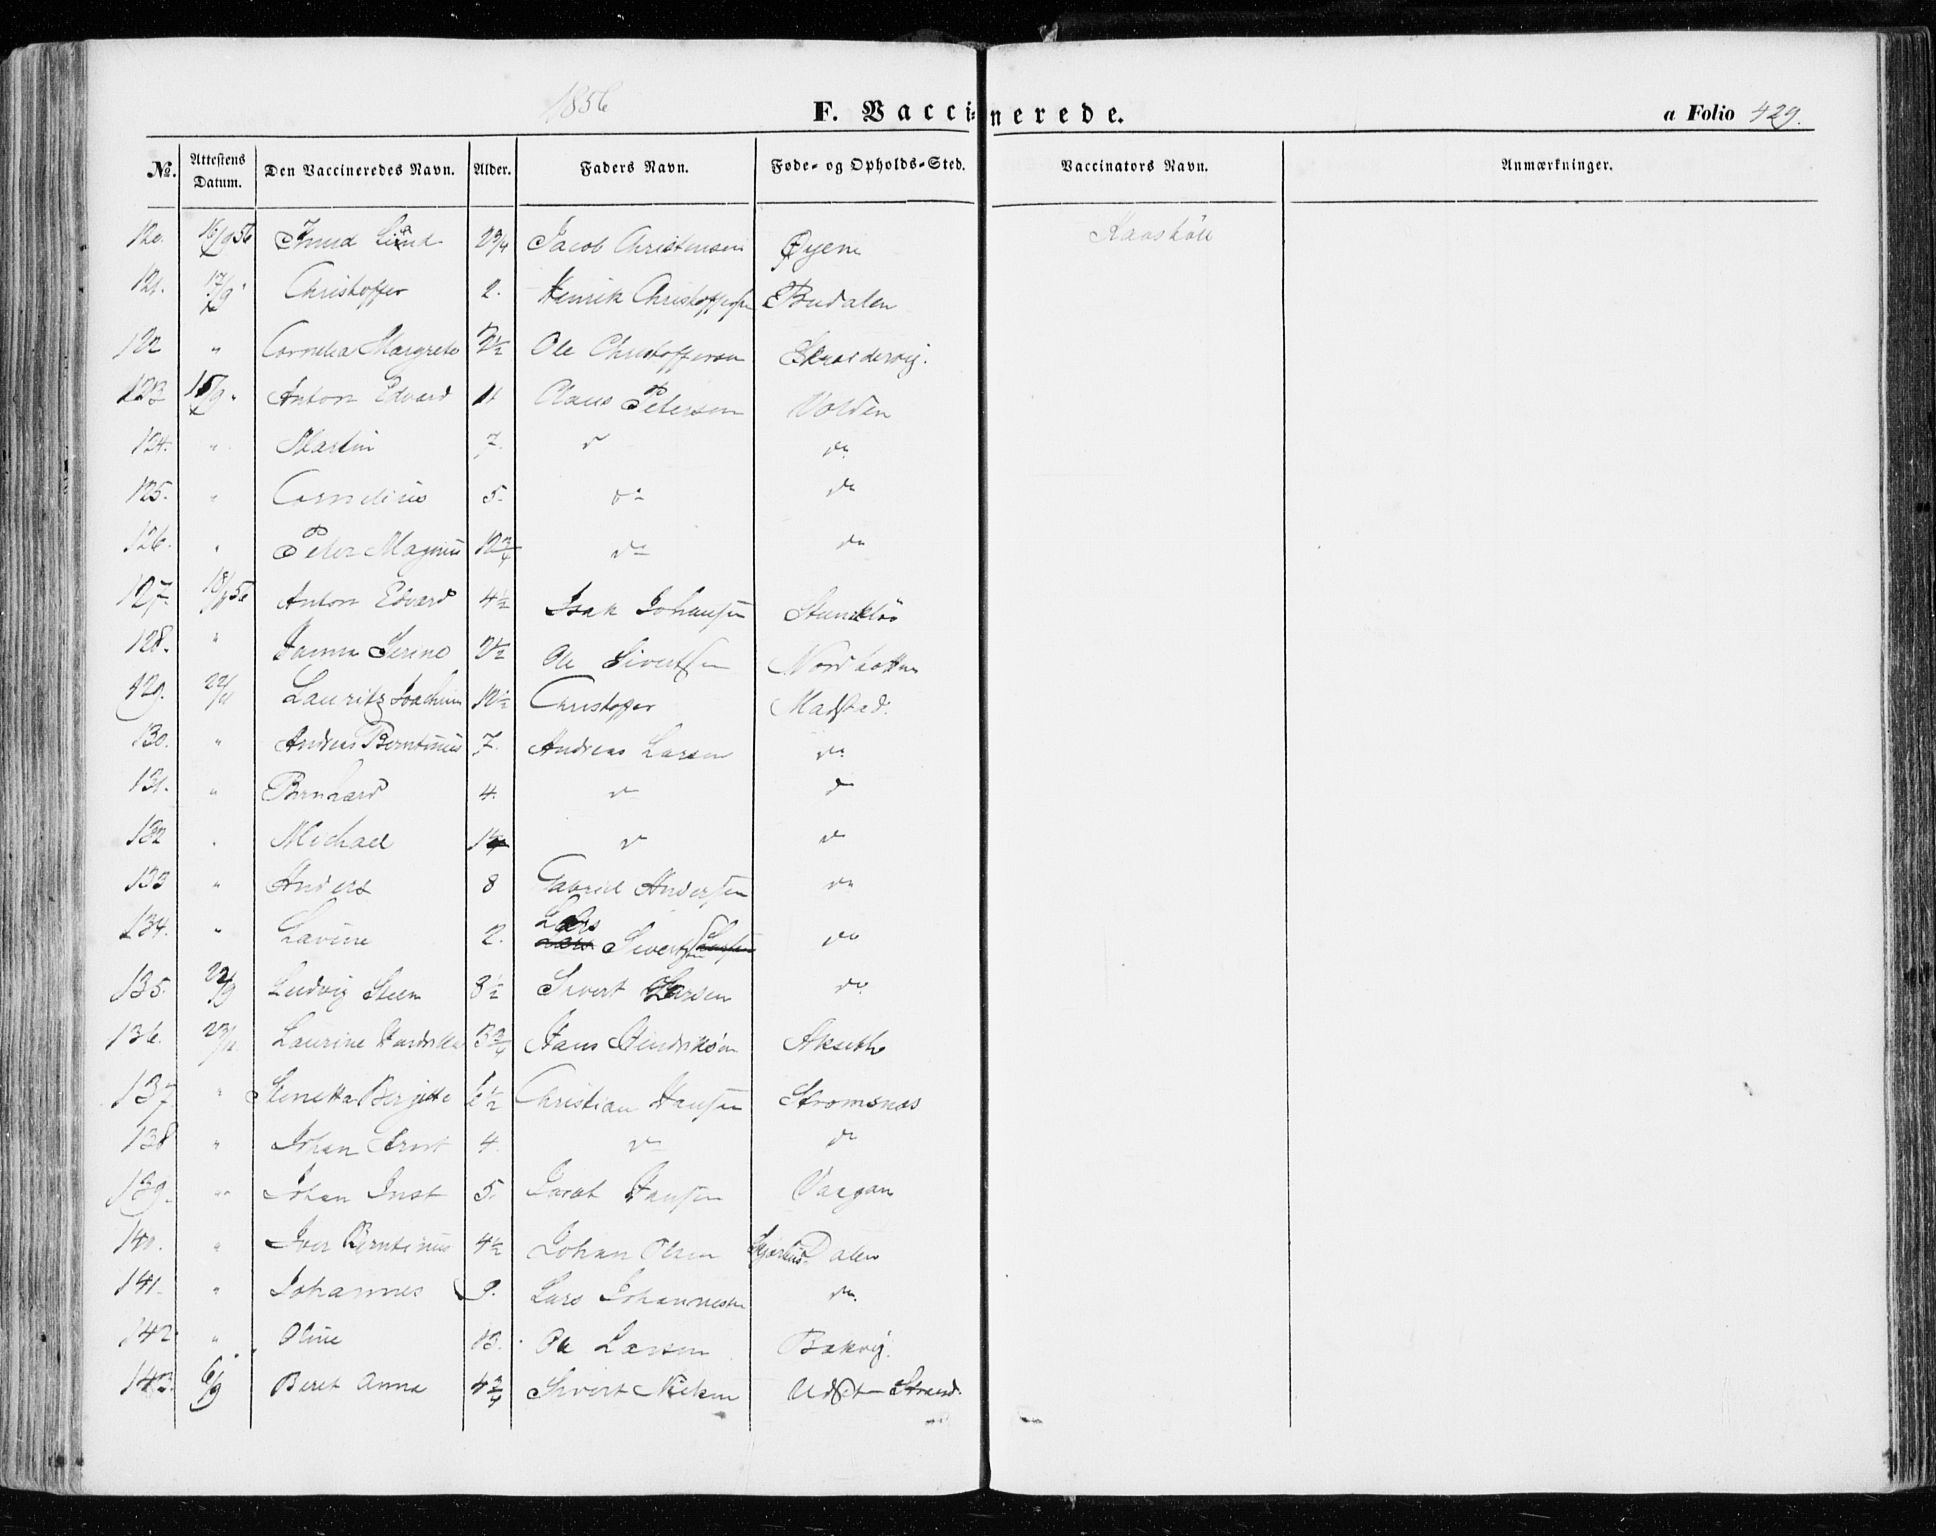 1856
F. Vaccinerede.
a Folio 429.
No. Attestens Datum. Den Vaccineredes Navn. Alder. Faders Navn. Føde- og Opholds-Sted. Vaccinators Navn. Anmærkninger.
120. 16/9 56 2 3/4 Jacob Christensen Øyene
121. 17/9 Christoffer 2. Henrik Christoffersen Budalen
122 " Cornelia Margrete 2 1/2 Ole Christofferson
123 15/9 " Anton Edvard 11 Claus Petersen Volden
124. " Martin 7. do do
125. " Cornelius 5. do do
126. " Peter Magnus 10 3/4 do do
127. Anton Edvard 4 1/2 Isak Johansen
128. " Hanna Serine 2 1/2 Ole Sivertsen
129. 22/11 Lauritz Joachim 10 1/2 Christoffer Madstad.
130. " Andreas Berntinus 7. Andreas Larsen do
131. " Bernhard 4. do do
132 " Michael do do
133 " Anders 8 Gabriel Andersen do
134. " Lavine 2. Lars Sivertsen do
135. 22/9 Ludvig Steen 8 1/2 Sivert Larsen do
136. 23/11 Laurine 3 3/4 Hans Hendriksøn
137. " Bergitte 6 1/2 Christian Hansen Stromsnæs
138 " Johan Ernst 4. do do
139. " Johan 5. Hansen Vaagan
140. " Iver Berntinus 4 1/2 Johan Olsen Dalen
141. " Johannes 9. Lars Johannesen do
142. " Oline 13. Ole Larsen Bakvig.
143. 6/9 Beret Anna 4 3/4 Sivert Nielsen Strand.